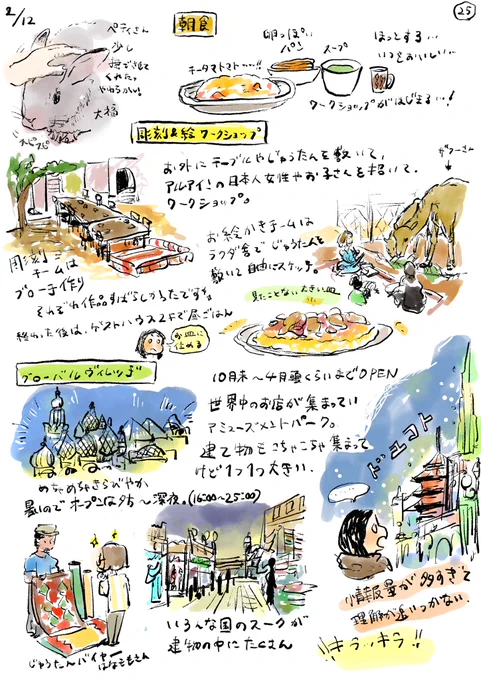 2/12
25
朝食
ペティさん
少し
撫でさせて
くれた。
やわらかい。
大福
スピスピ
チーズマトマト
卵っぽい
パン
スープ
ほっとする…
いつもおいしい…
ワークショップがはじまる…!
彫刻&絵 ワークショップ
お外にテーブルやじゅうたんを敷いて、
アルアイン の日本人女性やお子さんを招いて、
ワークショップ。
彫刻
チームは
ブローチ作り
それぞれ作品すばらしかったですな。
終わった後は、ゲストハウス2Fで昼ごはん
お絵かきチームは
ラクダ舎でじゅうたんを
敷いて自由にスケッチ。
見たことない大きい皿
お皿に
住める
グローバルヴィレッジ
10月末〜4月頭くらいまでOPEN
世界中のお店が集まってい
アミューズメントパーク。
建て物もごちゃごちゃ集まって
けど1つ1つ大きい.
めちゃめちゃきらびやか
暑いので オープンは夕方〜深夜。(16:00〜25:00)
ドッユコト
じゅうたんバイヤー
はなともさん
いろんな国のスークが
建物の中にたくさん
情報量が多すぎて
理解が追いつかない
キラッキラ!!